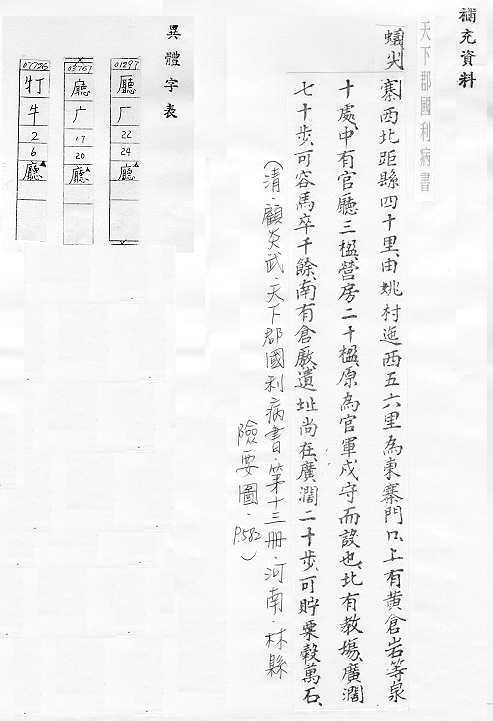 補充資料
天下郡國利病書
蟻尖寨西北距縣四十里、由姚村迤西五六里為東寨門口、上有黄倉岩等泉
十處、中有官廳三楹、營房二十楹、原為官軍戍守而設也、北有教場、廣濶
七十步、可容馬卒千餘、南有倉厫遺址尚在、廣濶二十步、可貯粟穀萬石、
（清．顧炎武．天下郡國利病書．第十三冊．河南．林縣
險要圖．P.582）
異體字表
01297
廳
厂
22
24
廳
03767
廰
广
17
20
廳
07726
牛
2
6
廳